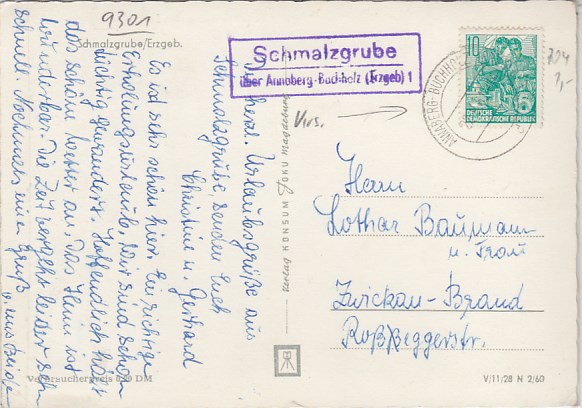 9301
Schmalzgrube/Erzgeb.
Schmalzgrube
über Annaberg-Buchholz (Erzgeb) 1
10
DEUTSCHE
DEMOKRATISCHE REPUBLIK
ANNABERG-BUCHHOLZ
herzl. Urlaubsgrüße aus
Schmalzgrube senden Euch
Christine u. Gerhard
Es ist sehr schön hier. Ein richtiger
Erholungsurlaub. Wir sind schon
tüchtig gewandert. Hoffentlich hält
das schöne Wetter an. Das Heim ist
wunderbar. Die Zeit vergeht leider sehr
schnell. Nochmals einen Gruß
v. uns beiden
Herrn
Lothar Baumann
u. Frau
Zwickau-Brand
Roßeggerstr.
verlag KONSUM
Verbraucherpreis DM
V/11/28 N 2/60